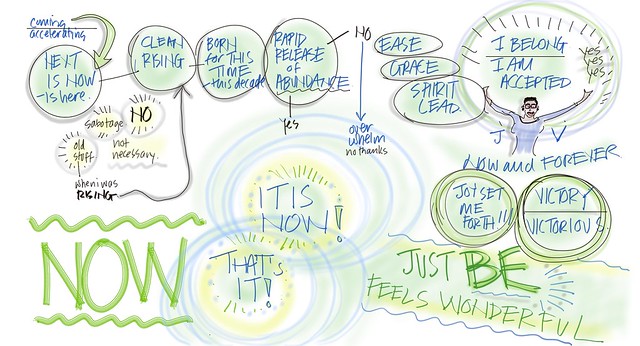 coming
accelerating
NEXT
IS NOW
-is here.
CLEAN
RISING
BORN
for THIS
TIME
-this decade
RAPID
RELEASE
of
ABUNDANCE
NO
yes
over
whelm
no thanks
sabotage
NO
not
necessary.
old
stuff
when i was
RISING
EASE
GRACE
SPIRIT
LEAD.
I BELONG
I AM
ACCEPTED
yes
yes
yes.
J
V
NOW and FOREVER
JOY SET
ME
FORTH!!!
VICTORY
VICTORIOUS.
IT IS
NOW!
THAT'S
IT!
NOW
JUST BE
FEELS WONDERFUL